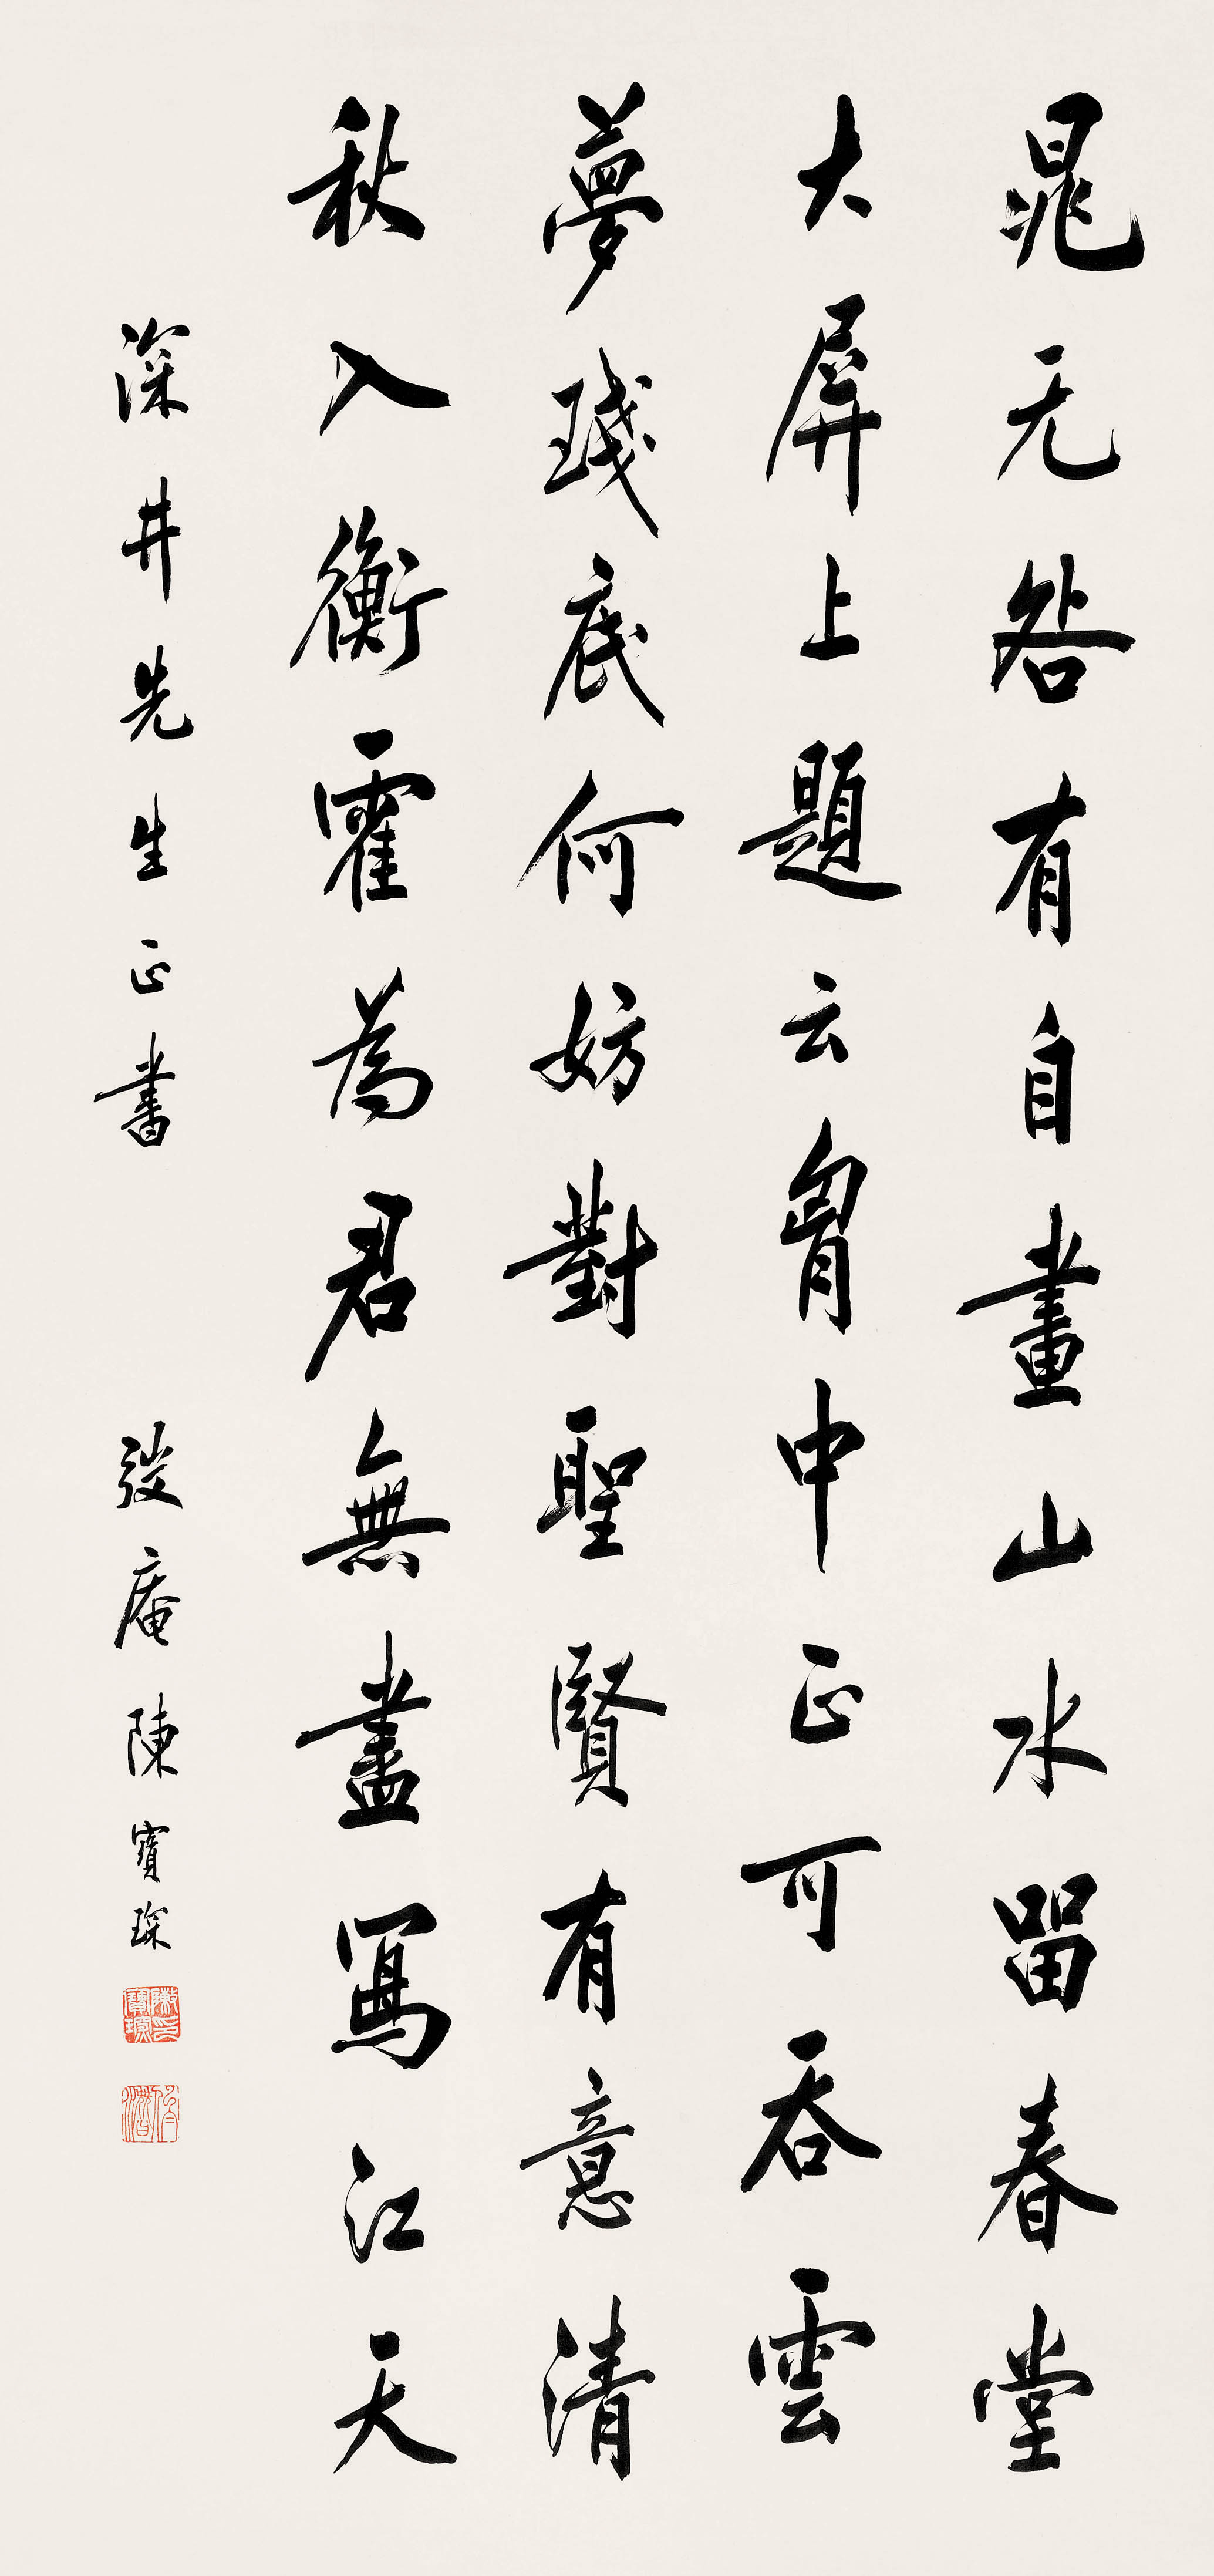 晁无咎有自畫山水留春堂
大屏上題云胷中正可吞雲
夢琖底何妨對聖賢有意清
秋入衡霍為君無盡寫江天
深井先生正書
弢庵陳寶琛
陳寶琛印